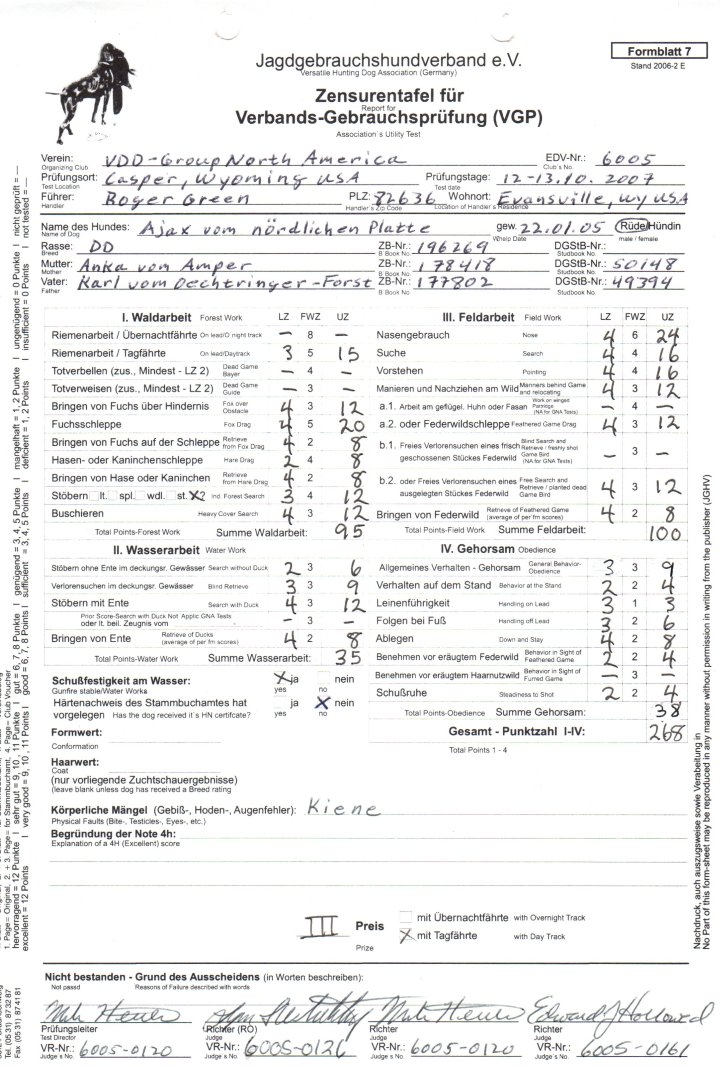 Jagdgebrauchshundverband e.V.
Versatile Hunting Dog Association (Germany)
Formblatt 7
Stand 2006-2 E
Zensurentafel für
Report for
Verbands-Gebrauchsprüfung (VGP)
Association´s Utility Test
Verein: VDD-Group North America EDV-Nr.: 6005
Organizing Club Club's No.
Prüfungsort: Casper, Wyoming USA Prüfungstage: 12-13.10.2007
Test Location Test date
Führer: Roger Green PLZ: 82636 Wohnort: Evansville, WY USA
Handler Handler´s Zip Code Location of Handler´s Residence
Name des Hundes: Ajax vom nördlichen Platte gew. 22.01.05 Rüde/Hündin
Name of Dog Whelp Date male / female
Rasse: DD ZB-Nr.: 196269 DGStB-Nr.:
Breed B Book No. Studbook No.
Mutter: Anka vom Amper ZB-Nr.: 178418 DGStB-Nr.: 50148
Mother B Book No Studbook No.
Vater: Karl vom Dechtringer-Forst ZB-Nr.: 177802 DGStB-Nr.: 49394
Father B Book No Studbook No.
I. Waldarbeit Forest Work LZ FWZ UZ
Riemenarbeit / Übernachtfährte On lead/O´night track – 8 –
Riemenarbeit / Tagfährte On lead/Daytrack 3 5 15
Totverbellen (zus., Mindest - LZ 2) Dead Game Bayer – 4 –
Totverweisen (zus., Mindest - LZ 2) Dead Game Guide – 3 –
Bringen von Fuchs über Hindernis Fox over Obstacle 4 3 12
Fuchsschleppe Fox Drag 4 5 20
Bringen von Fuchs auf der Schleppe Retrieve from Fox Drag 4 2 8
Hasen- oder Kaninchenschleppe Hare Drag 2 4 8
Bringen von Hase oder Kaninchen Retrieve from Hare Drag 4 2 8
Stöbern lt. spl. wdl. st. X? Ind. Forest Search 3 4 12
Buschieren Heavy Cover Search 4 3 12
Total Points-Forest Work Summe Waldarbeit: 95
II. Wasserarbeit Water Work
Stöbern ohne Ente im deckungsr. Gewässer Search without Duck 2 3 6
Verlorensuchen im deckungsr. Gewässer Blind Retrieve 3 3 9
Stöbern mit Ente Search with Duck 4 3 12
Prior Score-Search with Duck Not Applic GNA Tests
oder lt. beil. Zeugnis vom - – 3 –
Bringen von Ente Retrieve of Ducks (average of per fm scores) 4 2 8
Total Points-Water Work Summe Wasserarbeit: 35
III. Feldarbeit Field Work LZ FWZ UZ
Nasengebrauch Nose 4 6 24
Suche Search 4 4 16
Vorstehen Pointing 4 4 16
Manieren und Nachziehen am Wild Manners behind Game and relocating 4 3 12
a.1. Arbeit am geflügel. Huhn oder Fasan Work on winged Partridge (NA for GNA Tests) – 4 –
a.2. oder Federwildschleppe Feathered Game Drag 4 3 12
b.1. Freies Verlorensuchen eines frisch geschossenen Stückes Federwild Blind Search and Retrieve / freshly shot Game Bird (NA for GNA Tests) – 3 –
b.2. oder Freies Verlorensuchen eines ausgelegten Stückes Federwild Free Search and Retrieve / planted dead Game Bird 4 3 12
Bringen von Federwild Retrieve of Feathered Game (average of per fm scores) 4 2 8
Total Points-Field Work Summe Feldarbeit: 100
IV. Gehorsam Obedience
Allgemeines Verhalten - Gehorsam General Behavior- Obedience 3 3 9
Verhalten auf dem Stand Behavior at the Stand 2 2 4
Leinenführigkeit Handling on Lead 3 1 3
Folgen bei Fuß Handling off Lead 3 2 6
Ablegen Down and Stay 4 2 8
Benehmen vor eräugtem Federwild Behavior in Sight of Feathered Game 2 2 4
Benehmen vor eräugtem Haarnutzwild Behavior in Sight of Furred Game – 3 –
Schußruhe Steadiness to Shot 2 2 4
Total Points-Obedience Summe Gehorsam: 38
Gesamt - Punktzahl I-IV: 268
Total Points 1 - 4
Schußfestigkeit am Wasser: X ja nein
Gunfire stable/Water Works yes no
Härtenachweis des Stammbuchamtes hat
vorgelegen Has the dog received it´s HN certifcate? ja X nein
yes no
Formwert:
Conformation
Haarwert:
Coat
(nur vorliegende Zuchtschauergebnisse)
(leave blank unless dog has received a Breed rating
Körperliche Mängel (Gebiß-, Hoden-, Augenfehler): Kiene
Physical Faults (Bite-, Testicles-, Eyes-, etc.)
Begründung der Note 4h:
Explanation of a 4H (Excellent) score
III Preis
Prize
mit Übernachtfährte with Overnight Track
X mit Tagfährte with Day Track
Nicht bestanden - Grund des Ausscheidens (in Worten beschreiben):
Not passd Reasons of Failure described with words
Edward J Hollowed
Prüfungsleiter Richter (RO) Richter Richter
Test Director Judge Judge Judge
VR-Nr.: 6005-0120 VR-Nr.: 6005-0126 VR-Nr.: 6005-0120 VR-Nr.: 6005-0161
Judge´s No. Judge´s No. Judge´s No. Judge´s No.
nicht geprüft = —
not tested = —
ungenügend = 0 Punkte
insufficient = 0 Points
mangelhaft = 1, 2 Punkte
deficient = 1, 2 Points
genügend = 3, 4, 5 Punkte
sufficient = 3, 4, 5 Points
gut = 6, 7, 8 Punkte
good = 6, 7, 8 Points
sehr gut = 9, 10, 11 Punkte
very good = 9, 10, 11 Points
hervorragend = 12 Punkte
excellent = 12 Points
1. Page= Original, 2. + 3. Page= for Stammbuchamt, 4. Page= Club Voucher
Tel. (05 31) 87 32 87
Fax (05 31) 87 41 81
Nachdruck, auch auszugsweise sowie Verabeitung in
No Part of this form-sheet may be reproduced in any manner without permission in writing from the publisher (JGHV)